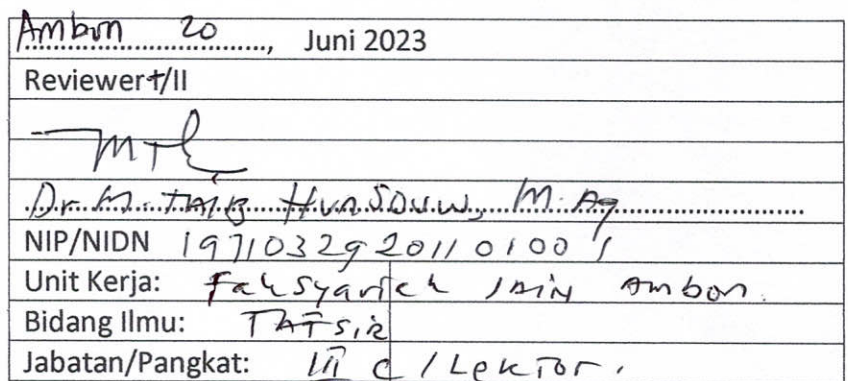 Ambon 20, Juni 2023
Reviewer I/II
Dr. M. TAIB Hunsouw, M.Ag
NIP/NIDN 197103292011010001
Unit Kerja: Fak Syariah IAIN Ambon.
Bidang Ilmu: TAFSIR
Jabatan/Pangkat: III C / Lektor.